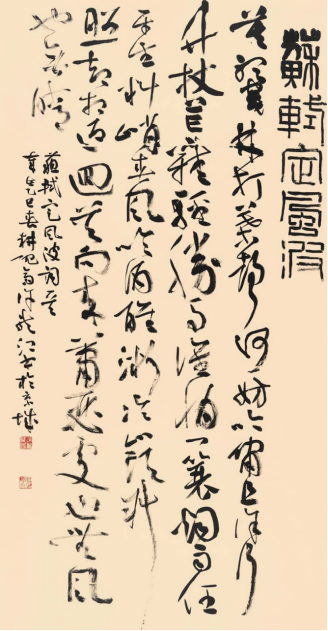 蘇軾定風波
莫聽穿林打葉聲何妨吟嘯且徐行
竹杖芒鞋輕勝馬誰怕一蓑烟雨任
平生料峭春風吹酒醒微冷山頭斜
照却相迎回首向來蕭瑟處也無風
也無晴
蘇軾定風波詞一首
乙巳春 於京城